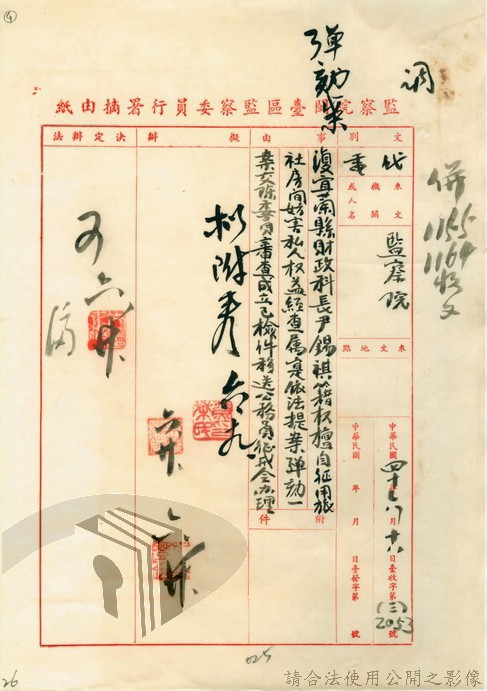 ④
調
併
1165
1164
收文
彈劾案
監察院閩臺區監察委員行署摘由紙
文別
代電
來文機關或人名
監察院
來文地點
中華民國四十年八月廿八日臺收字第(三)2053號
中華民國 年 月 日臺發字第 號
事由
復宜蘭縣財政科長尹錫祺籍权擅自征用旅
社房间妨害私人权益經查属实依法提案弹劾一
案交陈委員審查成立已檢件移送公務員征戒会办理
附件
擬辦
拟附卷 六九
六廿
決定辦法
可
六廿
025
26
請合法使用公開之影像